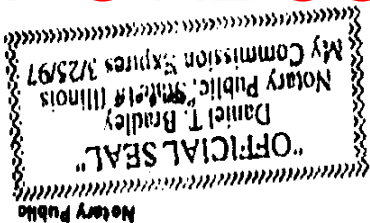 Notary Public
"OFFICIAL SEAL"
Daniel T. Bradley
Notary Public, State of Illinois
My Commission Expires 3/25/97